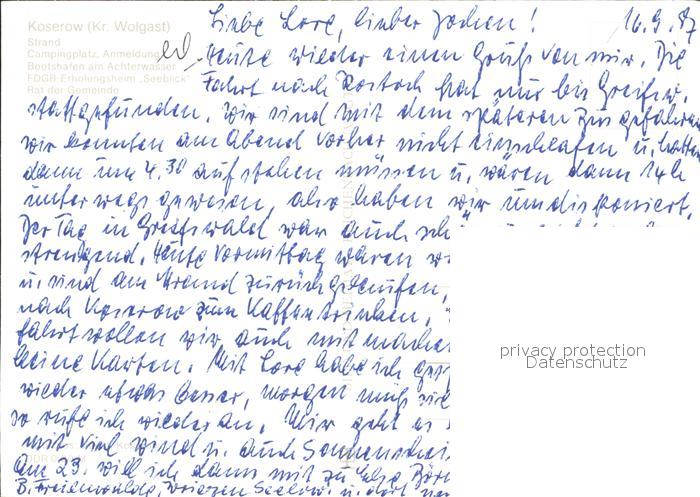 Koserow (Kr. Wolgast)
Strand
Campingplatz, Anmeldung
Bootshafen am Achterwasser
FDGB-Erholungsheim „Seeblick"
Rat der Gemeinde
16.9.87
Liebe Lore, lieber Jochen!
Heute wieder einen Gruß von mir. Die
Fahrt nach Rostock hat nur bis Greifsw.
stattgefunden. Wir sind mit dem späteren Zug gefahren
wir konnten am Abend vorher nicht einschlafen u. hatten
dann um 4.30 aufstehen müssen u. wären dann 14 h
unterwegs gewesen, also haben wir umdisponiert.
Der Tag in Greifswald war auch
strengend. Heute Vormittag waren
u. sind am Strand zurückgelaufen,
nach Koserow zum Kaffeetrinken,
fahrt wollen wir auch mitmachen
keine Karten. Mit Lore habe ich
wieder etwas besser, morgen muß sie
so rufe ich wieder an. Mir geht es
mit viel Wind u. auch Sonnenschei
Am 23. will ich dann mit zu
B. Freienwalde, Wriezen Seelow. u. dort
privacy protection
Datenschutz